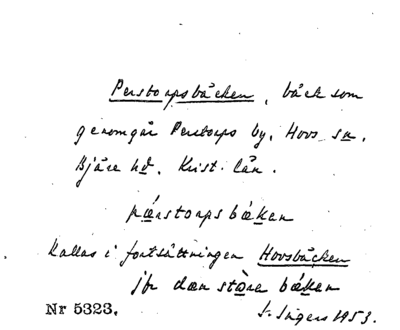 Perstorpsbäcken, bäck som
genomgår Perstorps by, Hovs sn.
Bjäre hd. Krist. län.
pærstorps bækan
Kallas i fortsättningen Hovsbäcken
jfr dæn støre bækan
Nr 5323. S. Ingers 1953.